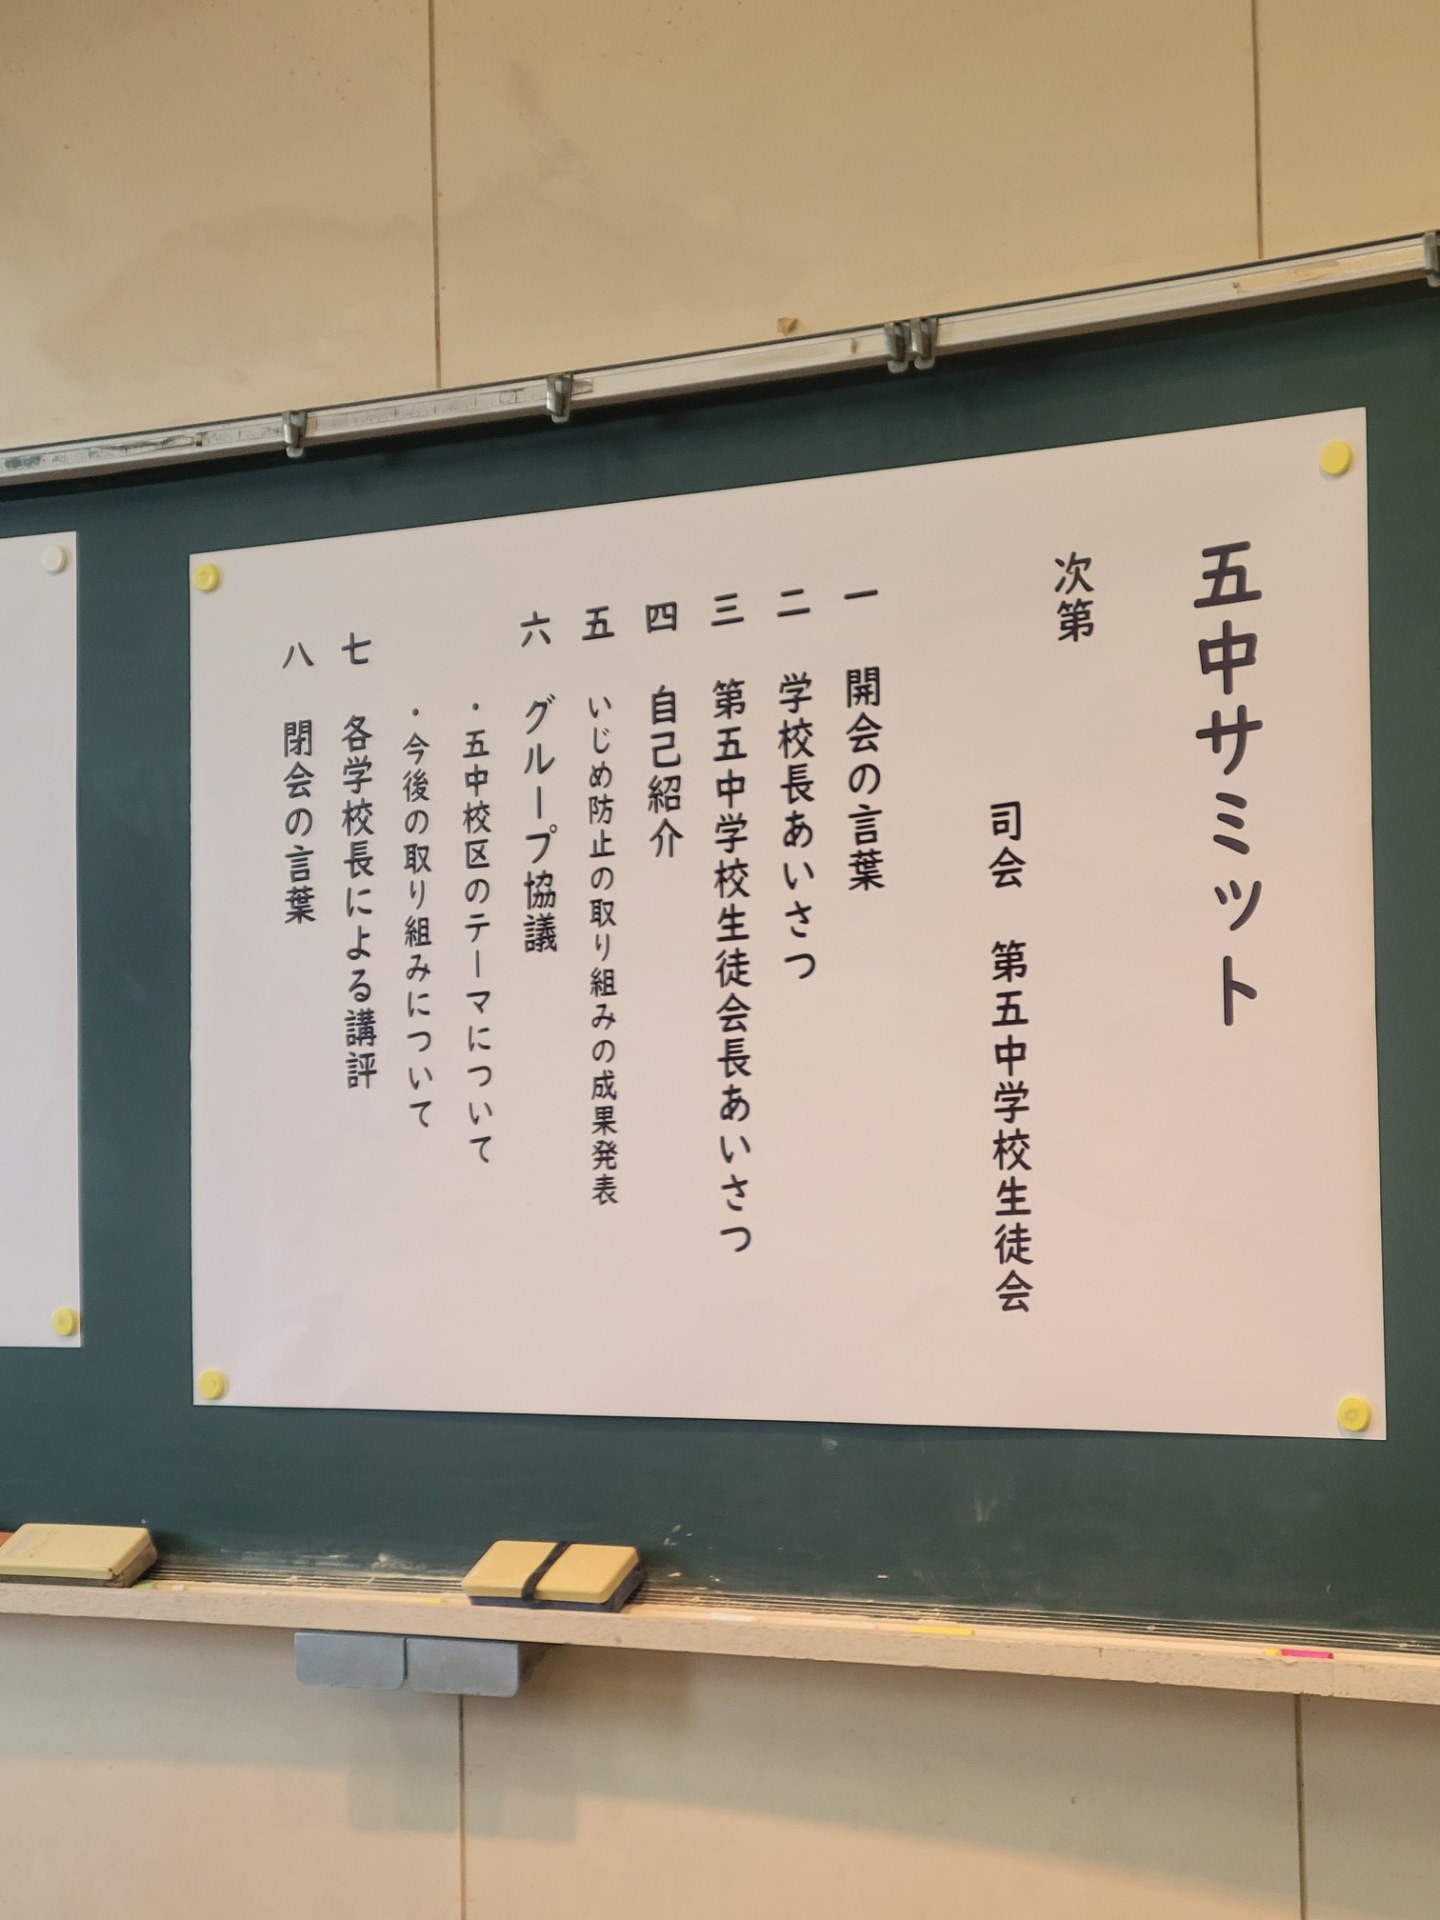 五中サミット
次第
司会　第五中学校生徒会
一　開会の言葉
二　学校長あいさつ
三　第五中学校生徒会長あいさつ
四　自己紹介
五　いじめ防止の取り組みの成果発表
六　グループ協議
・五中校区のテーマについて
・今後の取り組みについて
七　各学校長による講評
八　閉会の言葉